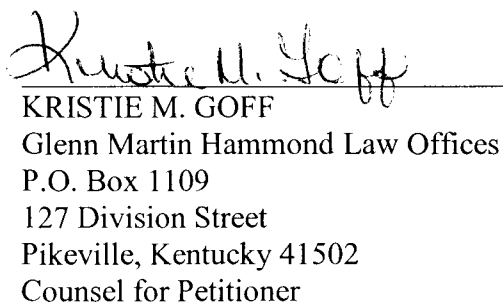 Kristie M. Goff
KRISTIE M. GOFF
Glenn Martin Hammond Law Offices
P.O. Box 1109
127 Division Street
Pikeville, Kentucky 41502
Counsel for Petitioner